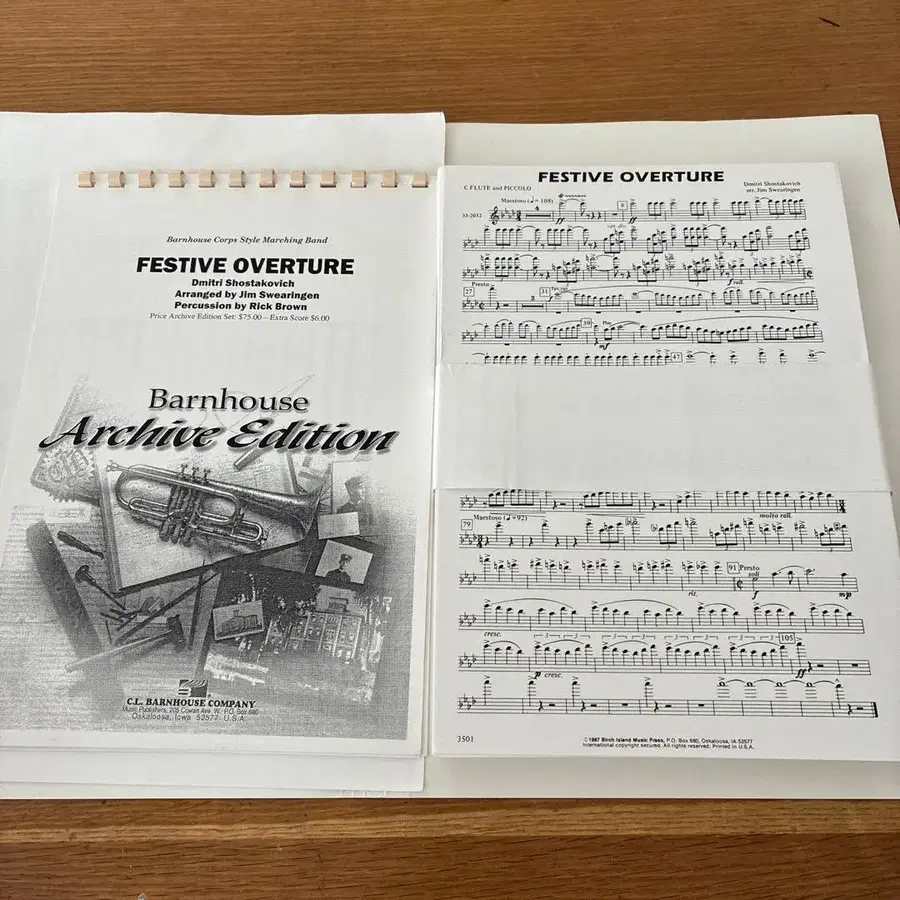 Barnhouse Corps Style Marching Band
FESTIVE OVERTURE
Dmitri Shostakovich
Arranged by Jim Swearingen
Percussion by Rick Brown
Price Archive Edition Set: $75.00 – Extra Score $6.00
Barnhouse
Archive Edition
C.L. BARNHOUSE COMPANY
Music Publishers, 205 Cowan Ave. W., P.O. Box 680
Oskaloosa, Iowa 52577 U.S.A.
FESTIVE OVERTURE
C FLUTE and PICCOLO
Dmitri Shostakovich
arr. Jim Swearingen
Maestoso (♩= 108)
4
ff
ff
8
33-2032
rall.
Presto
27
3
31
39
Play
mf
47
molto rall.
79
Maestoso (♩=92)
rit.
91
Presto
soli
f
mp
cresc.
3
3
3
3
3
3
105
p cresc.
ff
3501
©1987 Birch Island Music Press, P.O. Box 680, Oskaloosa, IA 52577
International copyright secured. All rights reserved. Printed in U.S.A.